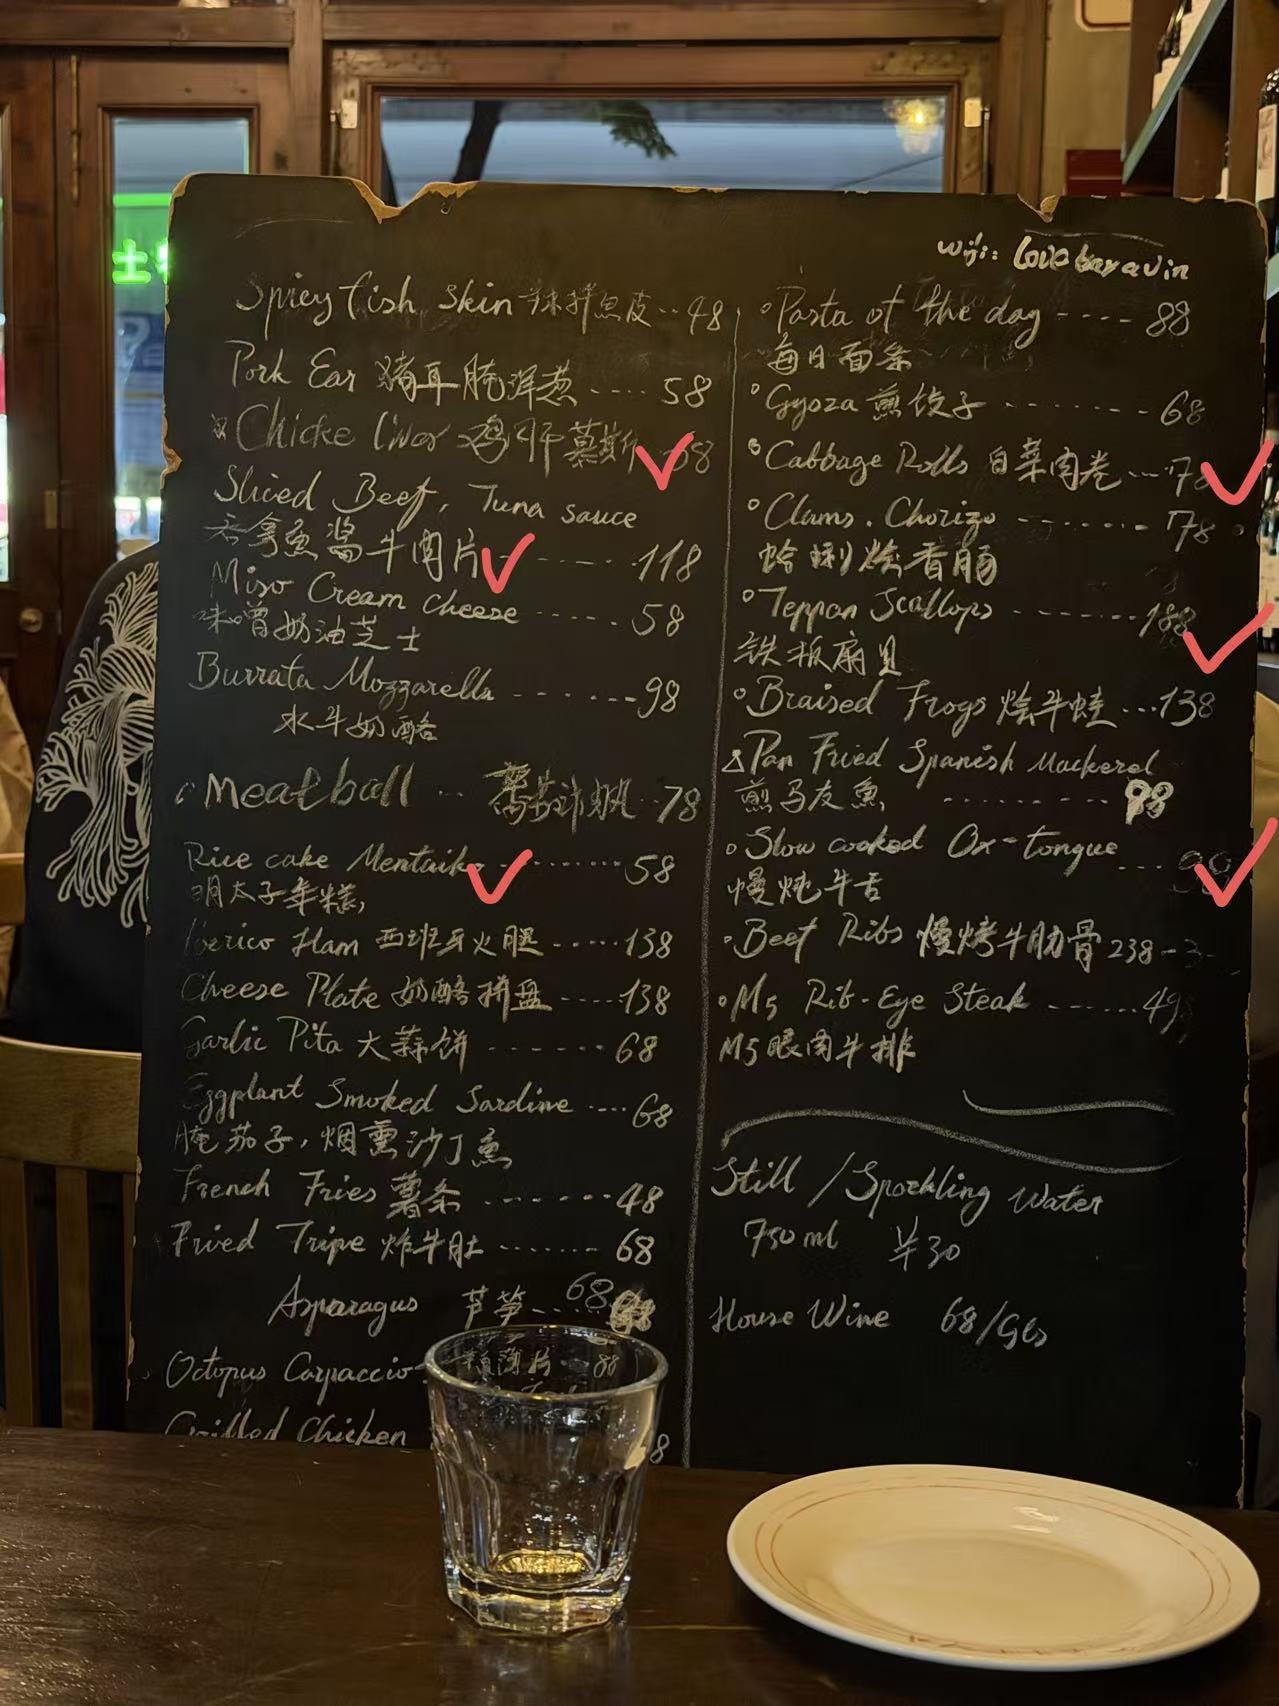 wifi: Lovebaravin
Spicy fish skin 辣拌魚皮 .. 48
Pork Ear 猪耳腌洋葱 .... 58
Chicke liver 鸡肝慕斯 8
Sliced Beef, Tuna sauce
吞拿魚酱牛肉片 ...... 118
Miso Cream cheese ..... 58
味噌奶油芝士
Burrata Mozzarella ------ 98
水牛奶酪
Meatball .. 78
Rice cake Mentaiko ........ 58
明太子年糕,
Iberico Ham 西班牙火腿 ..... 138
Cheese Plate 奶酪拼盘 .... 138
Garlic Pita 大蒜饼 ....... 68
Eggplant Smoked Sardine .... 68
腌茄子,烟熏沙丁魚
French Fries 薯条 ....... 48
Fried Tripe 炸牛肚 ....... 68
Asparagus 芦笋 .... 68
Octopus Carpaccio 薄片 .. 88
Grilled Chicken 8
Pasta of the day ---- 88
每日面条
Gyoza 煎饺子 -------- 68
Cabbage Rolls 白菜肉卷 ... 7
Clams. Chorizo -------- 78
蛤蜊烩香肠
Teppan Scallops ------- 188
铁板扇贝
Braised Frogs 烩牛蛙 ... 138
Pan Fried Spanish Mackerel
煎马友魚 -------- 98
Slow cooked Ox-tongue ...
慢炖牛舌
Beef Ribs 慢烤牛肋骨 238
M5 Rib-Eye Steak ------ 49
M5眼肉牛排
Still / Sparkling Water
750 ml ¥30
House Wine 68/Gls